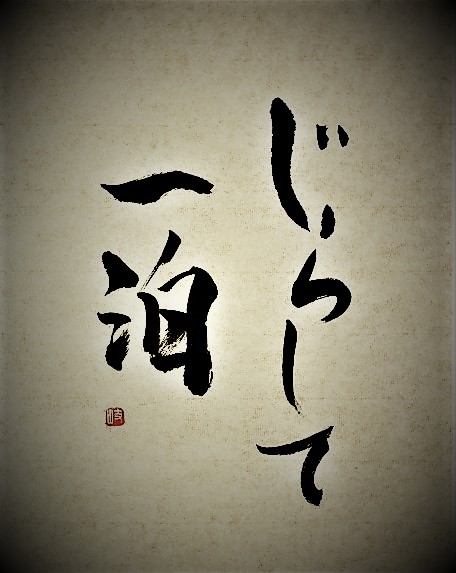 じらして
一泊